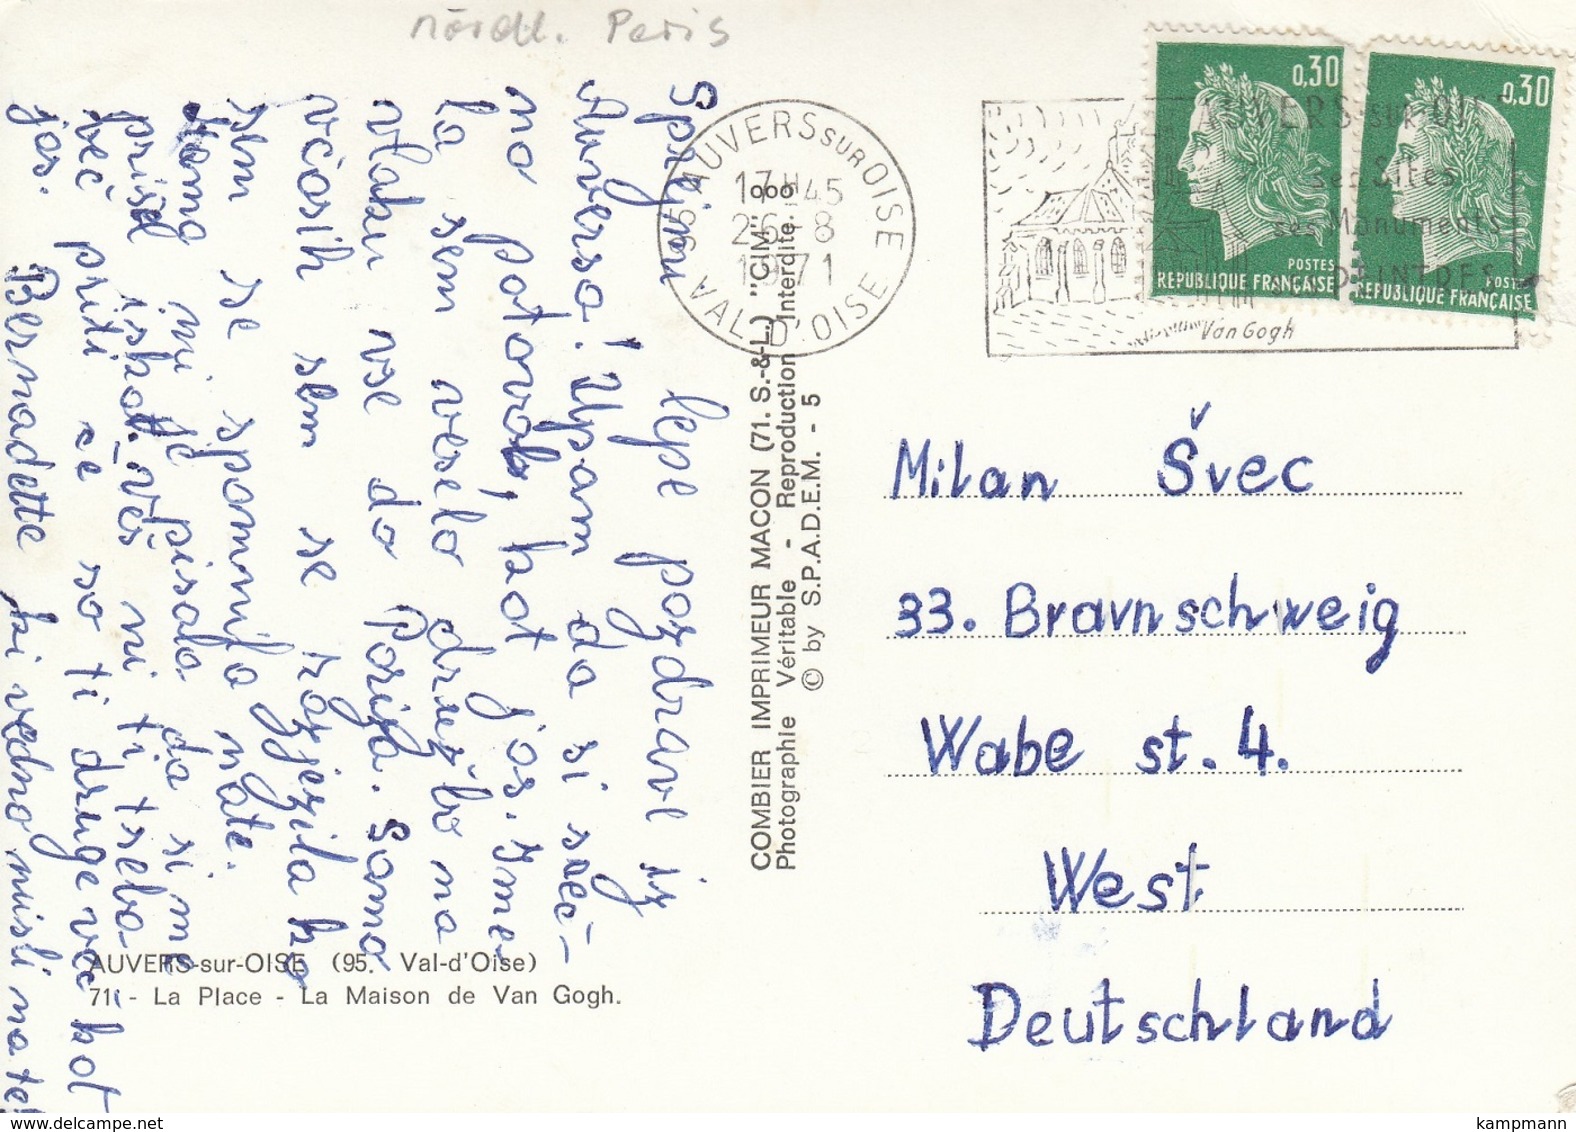 nördl. Paris
Sprejmi lepe pozdrave iz
Auversa! Upam da si sreč-
no potoval, kot jos. Ime-
la sem veselo družbo na
vlaku vse do Pariza. Samo
včosih sem se razjezila ko
sem se spomnila nate.
Mama mi je pisala da si me
prišel iskat. Veš ni ti treba
več priti ce so ti druge več kot
jas. Bernadette ki vedno misli nate!
AUVERS-sur-OISE (95. Val-d'Oise)
71. - La Place - La Maison de Van Gogh.
COMBIER IMPRIMEUR MACON (71. S.-&-L.) "CIM"
Photographie Véritable - Reproduction Interdite.
© by S.P.A.D.E.M. - 5
95 AUVERS SUR OISE
17H45
26-8
1971
VAL D'OISE
AUVERS-sur-OISE
Ses Sites
ses Monuments
ses PEINTRES
Van Gogh
0,30
POSTES
REPUBLIQUE FRANÇAISE
0,30
POSTES
REPUBLIQUE FRANÇAISE
Milan Švec
33. Braunschweig
Wabe st. 4.
West
Deutschland
www.delcampe.net
kampmann